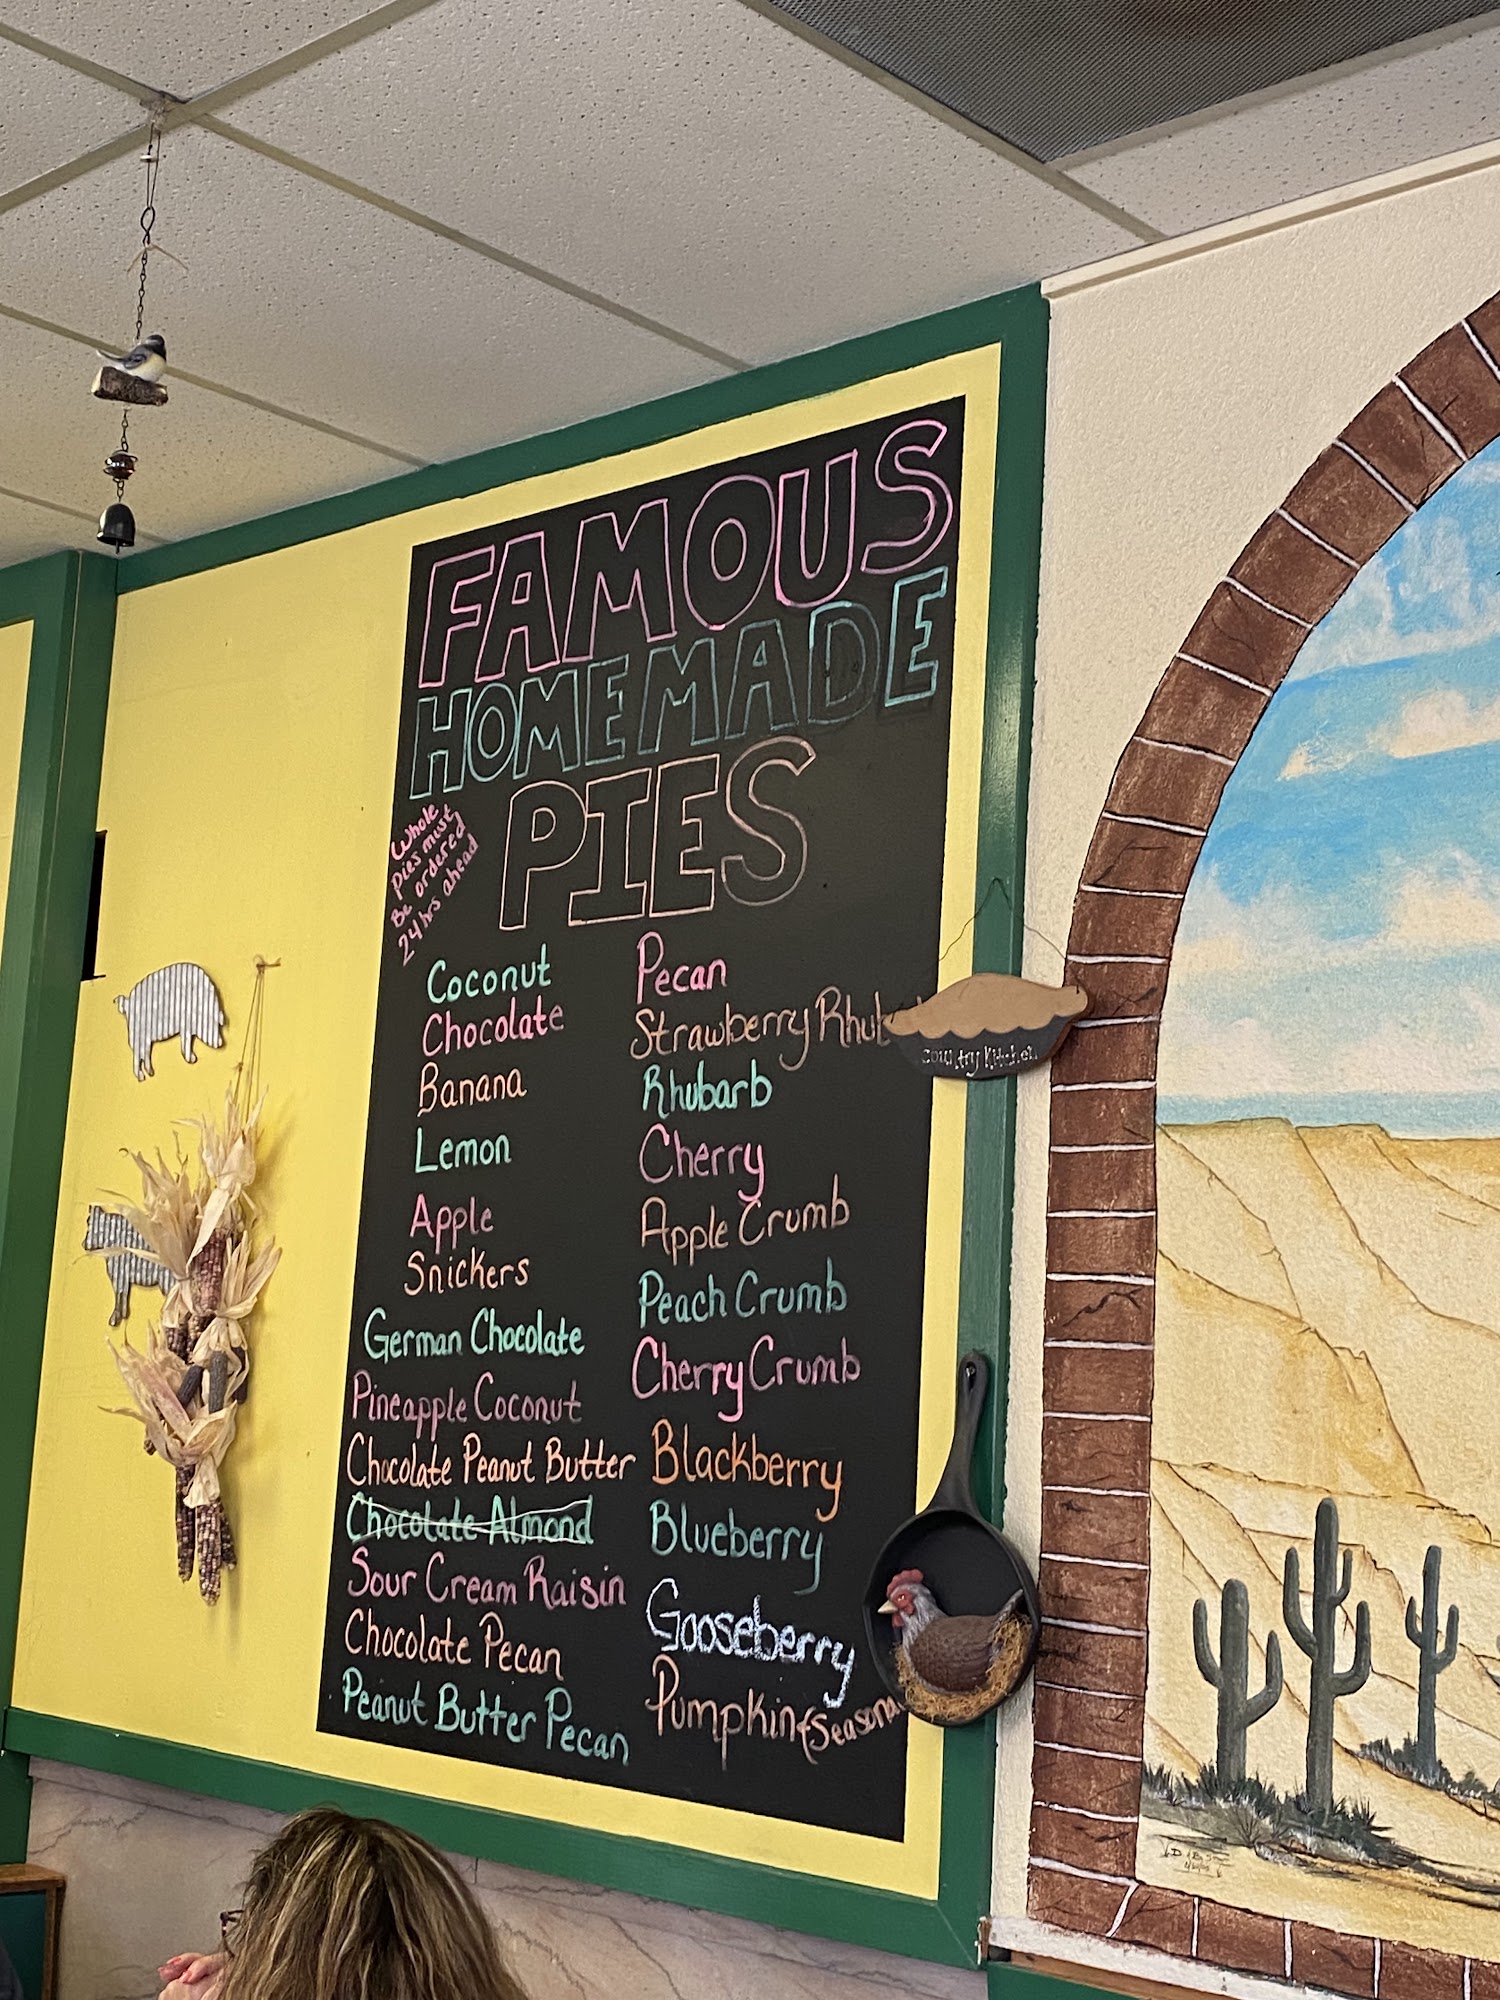 FAMOUS
HOMEMADE
PIES
Whole
pies must
Be ordered
24 hrs ahead
Coconut
Chocolate
Banana
Lemon
Apple
Snickers
German Chocolate
Pineapple Coconut
Chocolate Peanut Butter
Chocolate Almond
Sour Cream Raisin
Chocolate Pecan
Peanut Butter Pecan
Pecan
Strawberry Rhub
Rhubarb
Cherry
Apple Crumb
Peach Crumb
Cherry Crumb
Blackberry
Blueberry
Gooseberry
Pumpkin (Seasona
Country Kitchen